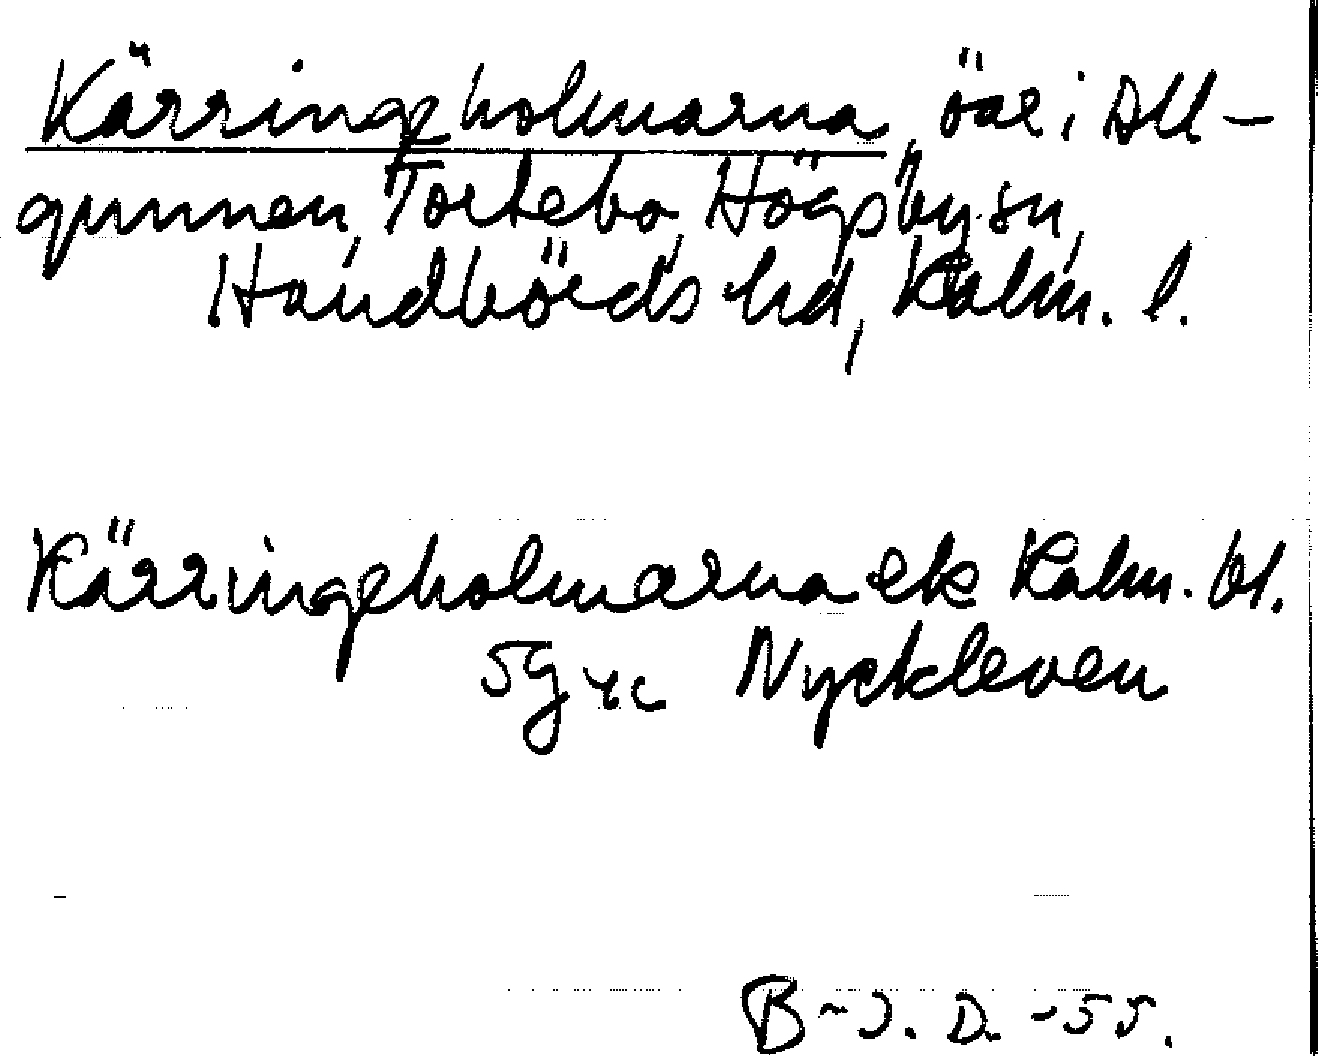 Kärringeholmarna, öar i All-
gunnen, Tortebo, Högsby sn,
Handbörds hd, Kalm. l.
Kärringeholmarna ek Kalm. bl.
5g 4c Nyckleven
B-J. D. -55.